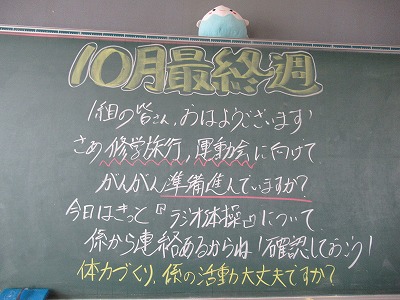 10月最終週
1組の皆さん、おはようございます!
さぁ修学旅行、運動会に向けて
がんがん準備進んでいますか?
今日はきっと『ラジオ体操』について
係から連絡あるからね!確認しておこう!
体力づくり、係の活動大丈夫ですか?